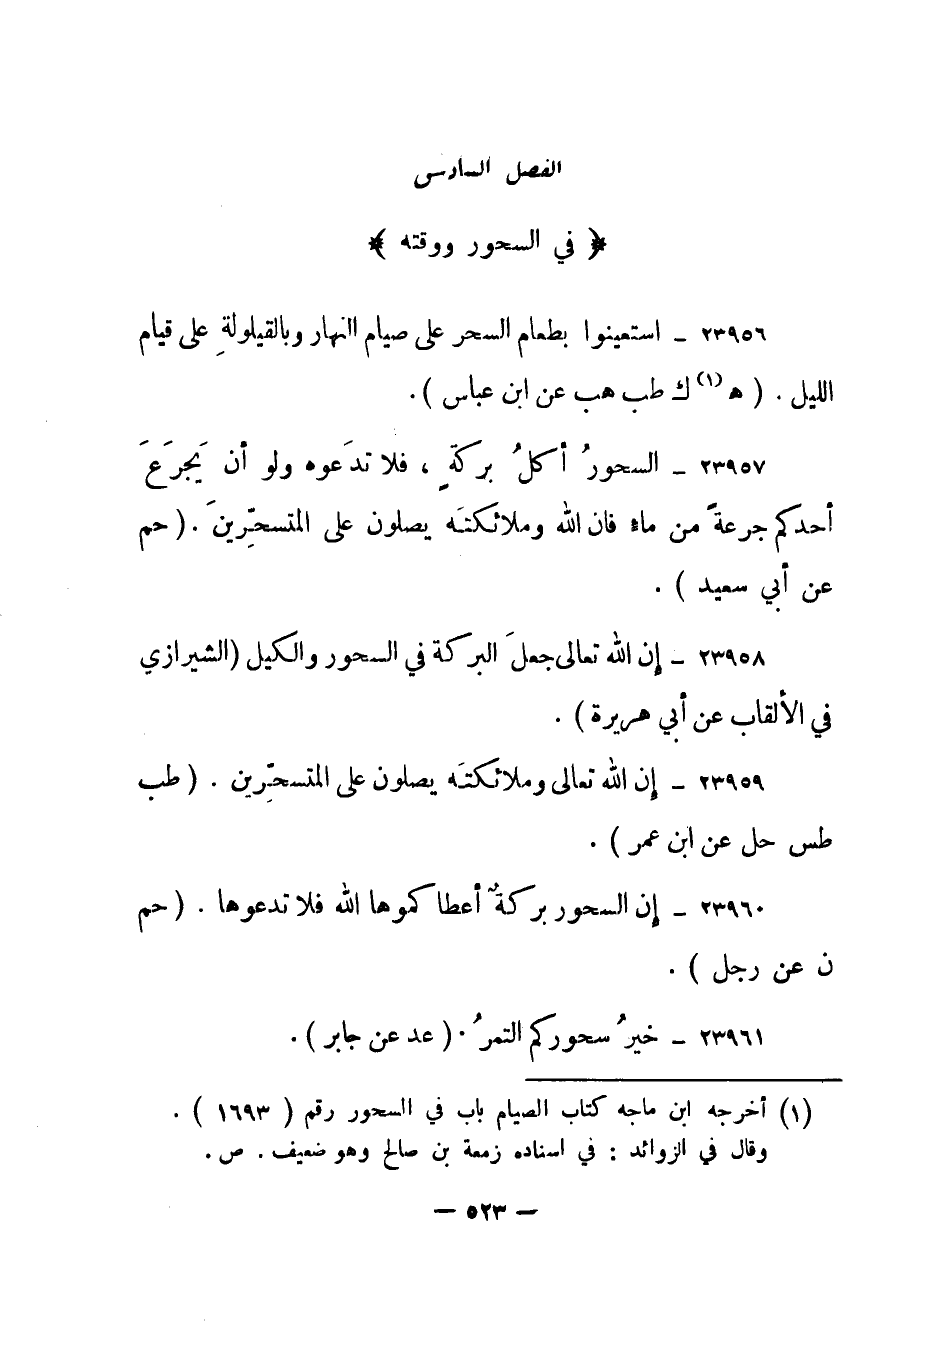 الفصل السادس
﴿ في السحور ووقته ﴾
٢٣٩٥٦ ـ استعينوا بطعام السحر على صيام النهار وبالقيلولةِ على قيام
الليل . ( ه(١) ك طب هب عن ابن عباس ).
٢٣٩٥٧ ـ السحورُ أكلُ بركةٍ ، فلا تدَعوه ولو أن يَجرَعَ
أحدكم جرعةً من ماء فان الله وملائكتَه يصلون على المتسحّرِينَ .( حم
عن أبي سعيد ) .
٢٣٩٥٨ ـ إن الله تعالى جعلَ البركة في السحور والكيل (الشيرازي
في الألقاب عن أبي هريرة ) .
٢٣٩٥٩ ـ إن الله تعالى وملائكتَه يصلون على المتسحّرِين . ( طب
طس حل عن ابن عمر ) .
٢٣٩٦٠ ـ إن السحور بركةٌ أعطاكموها الله فلا تدعوها . ( حم
ن عن رجل ) .
٢٣٩٦١ ـ خيرُ سحوركم التمرُ .( عد عن جابر ) .
(١) أخرجه ابن ماجه كتاب الصيام باب في السحور رقم ( ١٦٩٣ ) .
وقال في الزوائد : في اسناده زمعة بن صالح وهو ضعيف . ص .
— ٥٢٣ —